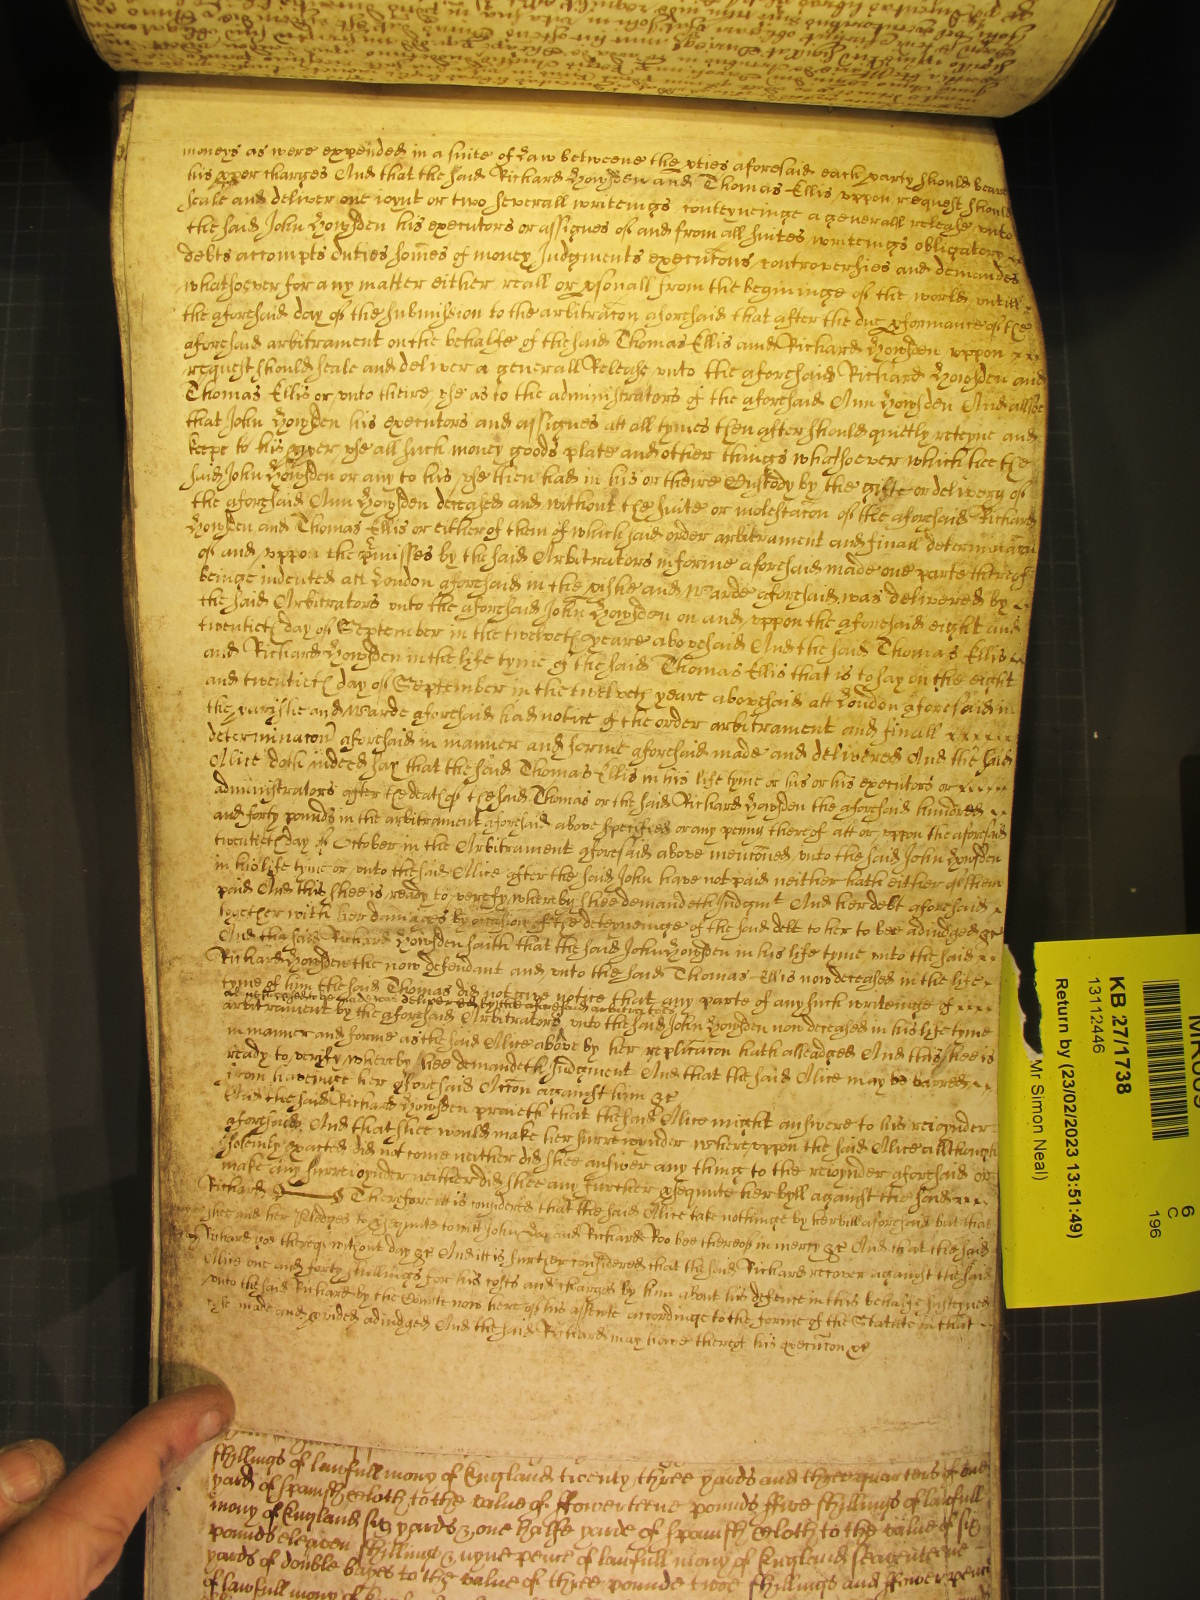 moneys as were expended in a suite of Law betweene the pties aforesaid each party should beare
his pper charges And that the said Richard Howsden and Thomas Ellis vppon request should
seale and deliver one ioynt or two severall writeings conteyneinge a generall release vnto
the said John Howsden his executors or assignes of and from all suites writeings obligatory
debts accompts duties somes of money Judgments executons controversies and demandes
whatsoever for any matter either reall or psonall from the begininge of the world vntill
the aforesaid day of the submission to the arbitracon aforesaid that after the due pformance of the
aforesaid arbitrament on the behalfe of the said Thomas Ellis and Richard Howsden vppon
request should seale and deliver a generall Release vnto the aforesaid Richard Howsden and
Thomas Ellis or vnto theire vse as to the administrators of the aforesaid Ann Howsden And allsoe
that John Howsden his executors and assignes att all tymes then after should quietly reteyne and
keepe to his pper vse all such money goods plate and other things whatsoever which hee the
said John Howsden or any to his vse then had in his or theire Custody by the gifte or delivery of
the aforesaid Ann Howsden deceased and without the suite or molestacon of the aforesaid Richard
Howsden and Thomas Ellis or either of them of which said order arbitrament and finall determinacon
of and vppon the pmisses by the said Arbitrators in forme aforesaid made one parte thereof
beinge indented att London aforesaid in the pishe and Warde aforesaid was delivered by
the said Arbitrators vnto the aforesaid John Howsden on and vppon the aforesaid eight and
twentieth day of September in the twelveth yeare abovesaid And the said Thomas Ellis
and Richard Howsden in the life tyme of the said Thomas Ellis that is to say in the eight
and twentieth day of September in the twelveth yeare abovesaid att London aforesaid in
the parishe and Warde aforesaid had notice of the order arbitrament and finall
determinacon aforesaid in manner and forme aforesaid made and delivered And the said
Alice doth indeed say that the said Thomas Ellis in his life tyme or his or his executors or
administrators after the death of the said Thomas or the said Richard Howsden the aforesaid hundred
and forty pounds in the arbitrament aforesaid above specified or any penny thereof att or vppon the aforesaid
twentieth day of October in the Arbitrament aforesaid above menconed vnto the said John Howsden
in his life tyme or vnto the said Alice after the said John have not paid neither hath either of them
paid And this shee is ready to verefy whereby shee demandeth Judgmt And her debt aforesaid
together with her damages by occasion of the deteyneinge of the said debt to her to bee adiudged &c
And the said Richard Howsden saith that the said John Howsden in his life tyme vnto the said
Richard Howsden the now defendant and vnto the said Thomas Ellis now deceased in the life
tyme of him the said Thomas did not give notice that any parte of any such writeinge of
arbitrament by the aforesaid Arbitrators vnto the said John Howsden now deceased in his life tyme
in manner and forme as the said Alice above by her replicacon hath alleadged And this shee is
ready to verify whereby hee demandeth Judgment And that the said Alice may be barred
from haveinge her aforesaid Accon against him &c
And the said Richard Howsden prayeth that the said Alice might answere to his reioynder
aforesaid And that shee would make her surreioynder wherevppon the said Alice allthough
solemly exacted did not come neither did shee answer any thing to the reioynder aforesaid or
make any surreioynder neither did shee any further psequute her byll against the said
Richard Therefore it is considered that the said Alice take nothinge by her bill aforesaid but that
shee and her pledges to psequute to witt John Doe and Richard Roo bee thereof in mercy &c And that the said
Richard goe thereof without day &c And itt is further considered that the said Richard recover against the said
Alice one and forty shillings for his costs and charges by him about his defence in this behalfe susteyned
vnto the said Richard by the Courte now here of his assente accordinge to the forme of the Statute in that
case made and pvided adiudged And the said Richard may have thereof his execucon &c
shillings of lawfull mony of England twenty three yards and three quarters of one
yard of spanish cloth to the value of ffowerteene pounds ffive shillings of lawfull
mony of England six yards & one halfe yarde of spanish cloth to the value of six
pounds eleaven shillings & nyne pence of lawfull mony of England seaventeene
yards of double bayes to the value of three pounds twoe shillings and ffower pence
of lawfull mony of
KB 27/1738
13112446
Return by (23/02/2023 13:51:49)
Mr Simon Neal)
6
C
196